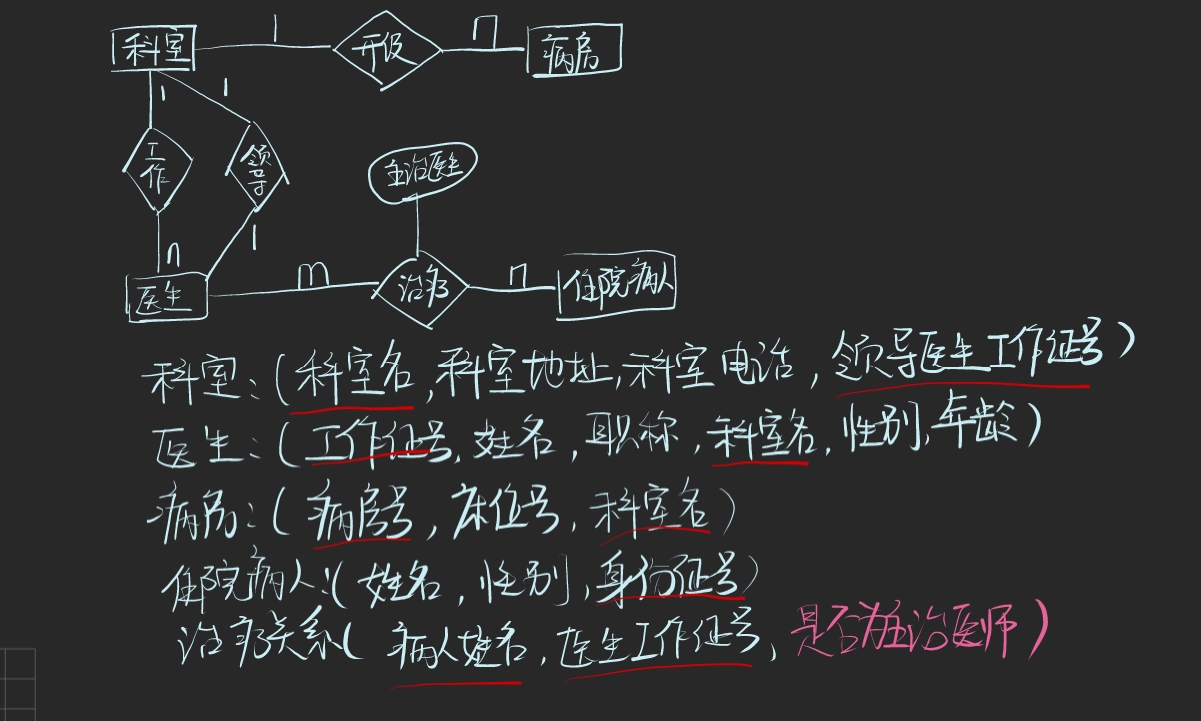 科室 1 开设 n 病房
1 1
工作 领导 主治医生
n 1
医生 m 治疗 n 住院病人
科室:(科室名,科室地址,科室电话,领导医生工作证号)
医生:(工作证号,姓名,职称,科室名,性别,年龄)
病房:(病房号,床位号,科室名)
住院病人:(姓名,性别,身份证号)
治疗关系(病人姓名,医生工作证号,是否为主治医师)